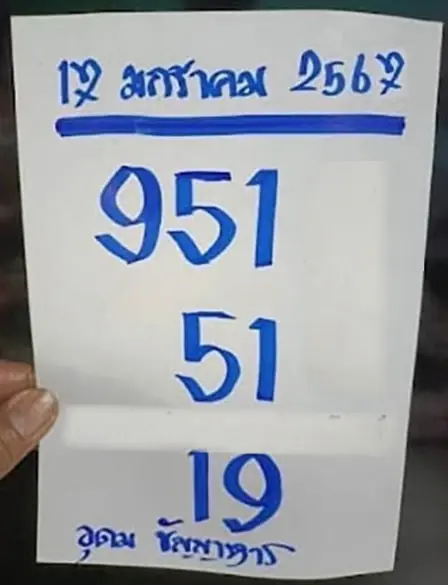 17 มกราคม 2567
951
51
19
อุดม ชัญญาหาร